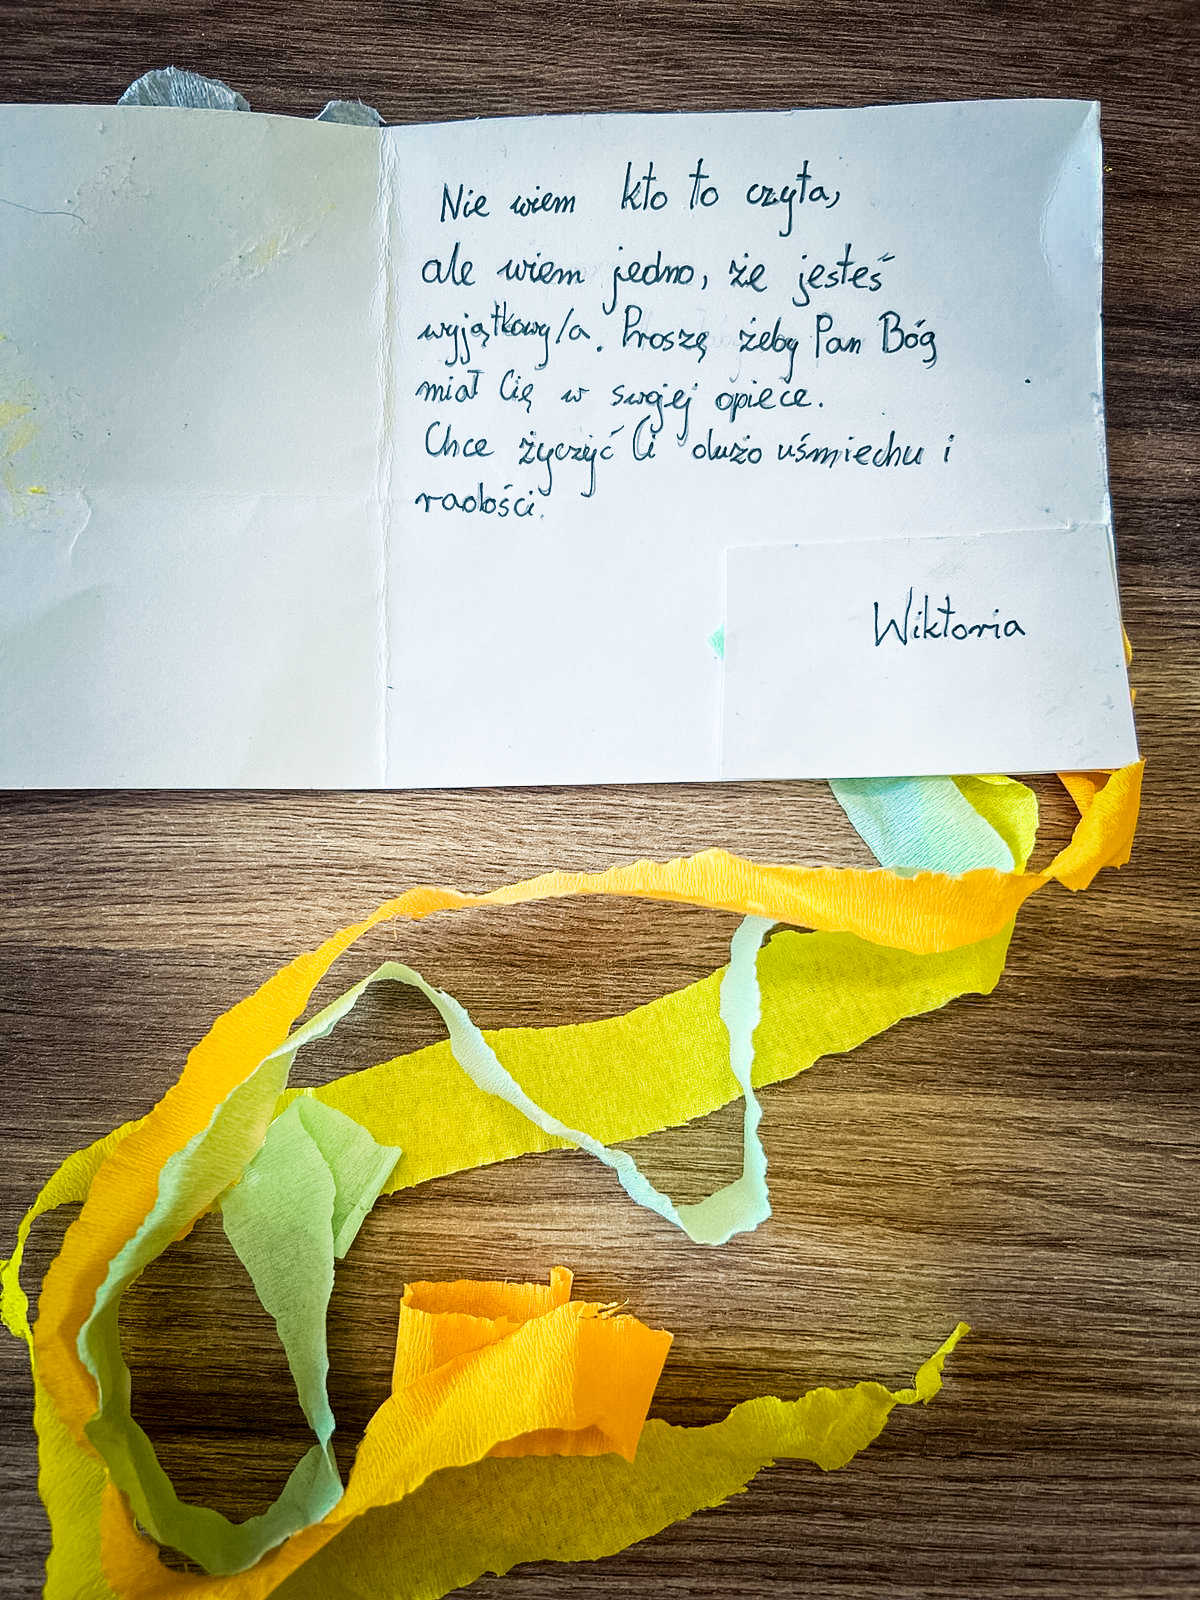 Nie wiem kto to czyta,
ale wiem jedno, że jesteś
wyjątkowy/a. Proszę żeby Pan Bóg
miał Cię w swojej opiece.
Chce życzyć Ci dużo uśmiechu i
radości.
Wiktoria